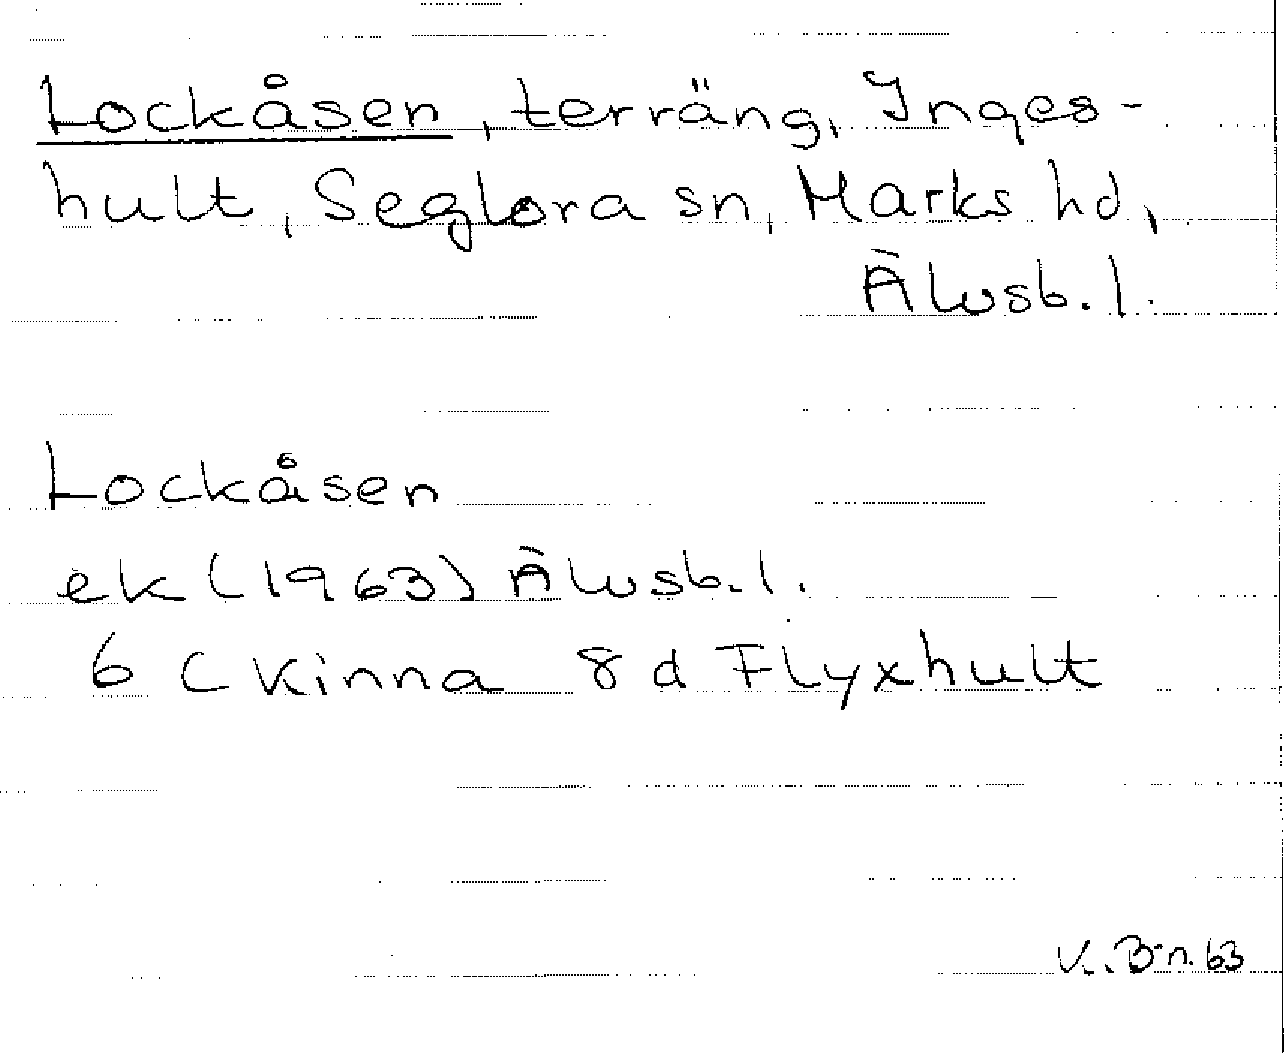 Lockåsen, terräng, Inges-
hult, Seglora sn, Marks hd,
Älvsb. l.
Lockåsen
ek (1963) Älvsb. l.
6 C Kinna 8 d Flyxhult
V. B-n. 63